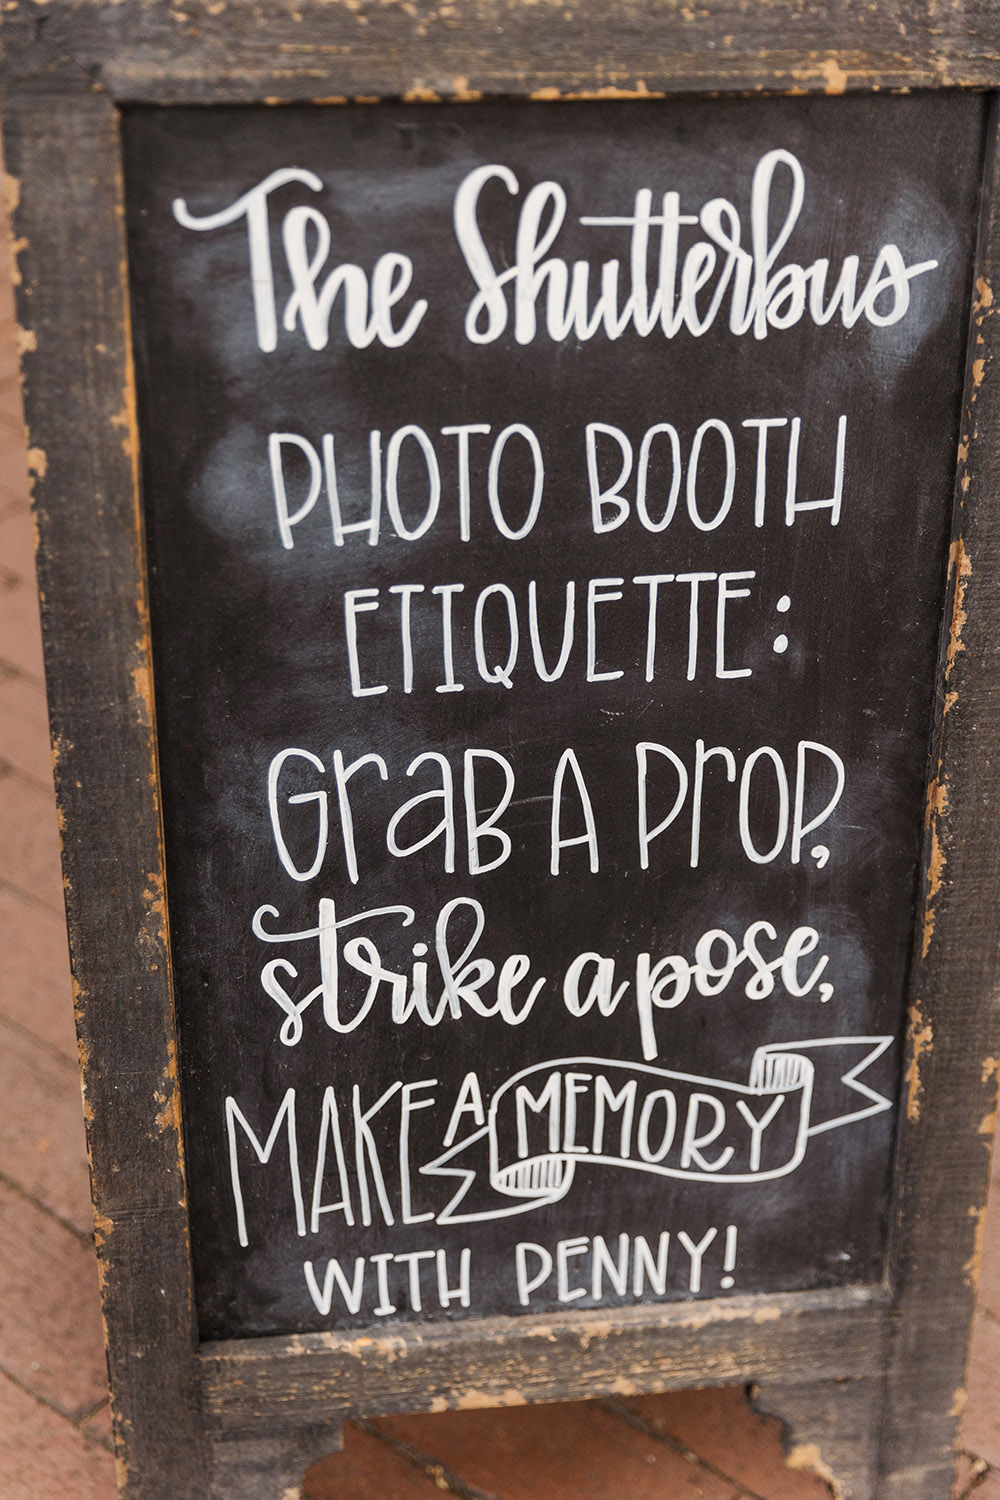 The Shutterbus
PHOTO BOOTH
ETIQUETTE:
Grab A Prop,
strike a pose,
MAKE A MEMORY
WITH PENNY!